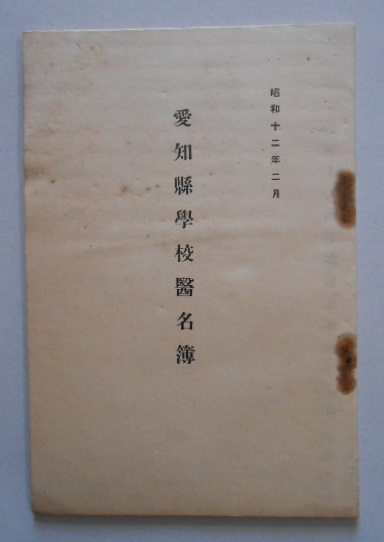 昭和十二年二月
愛知縣學校醫名簿